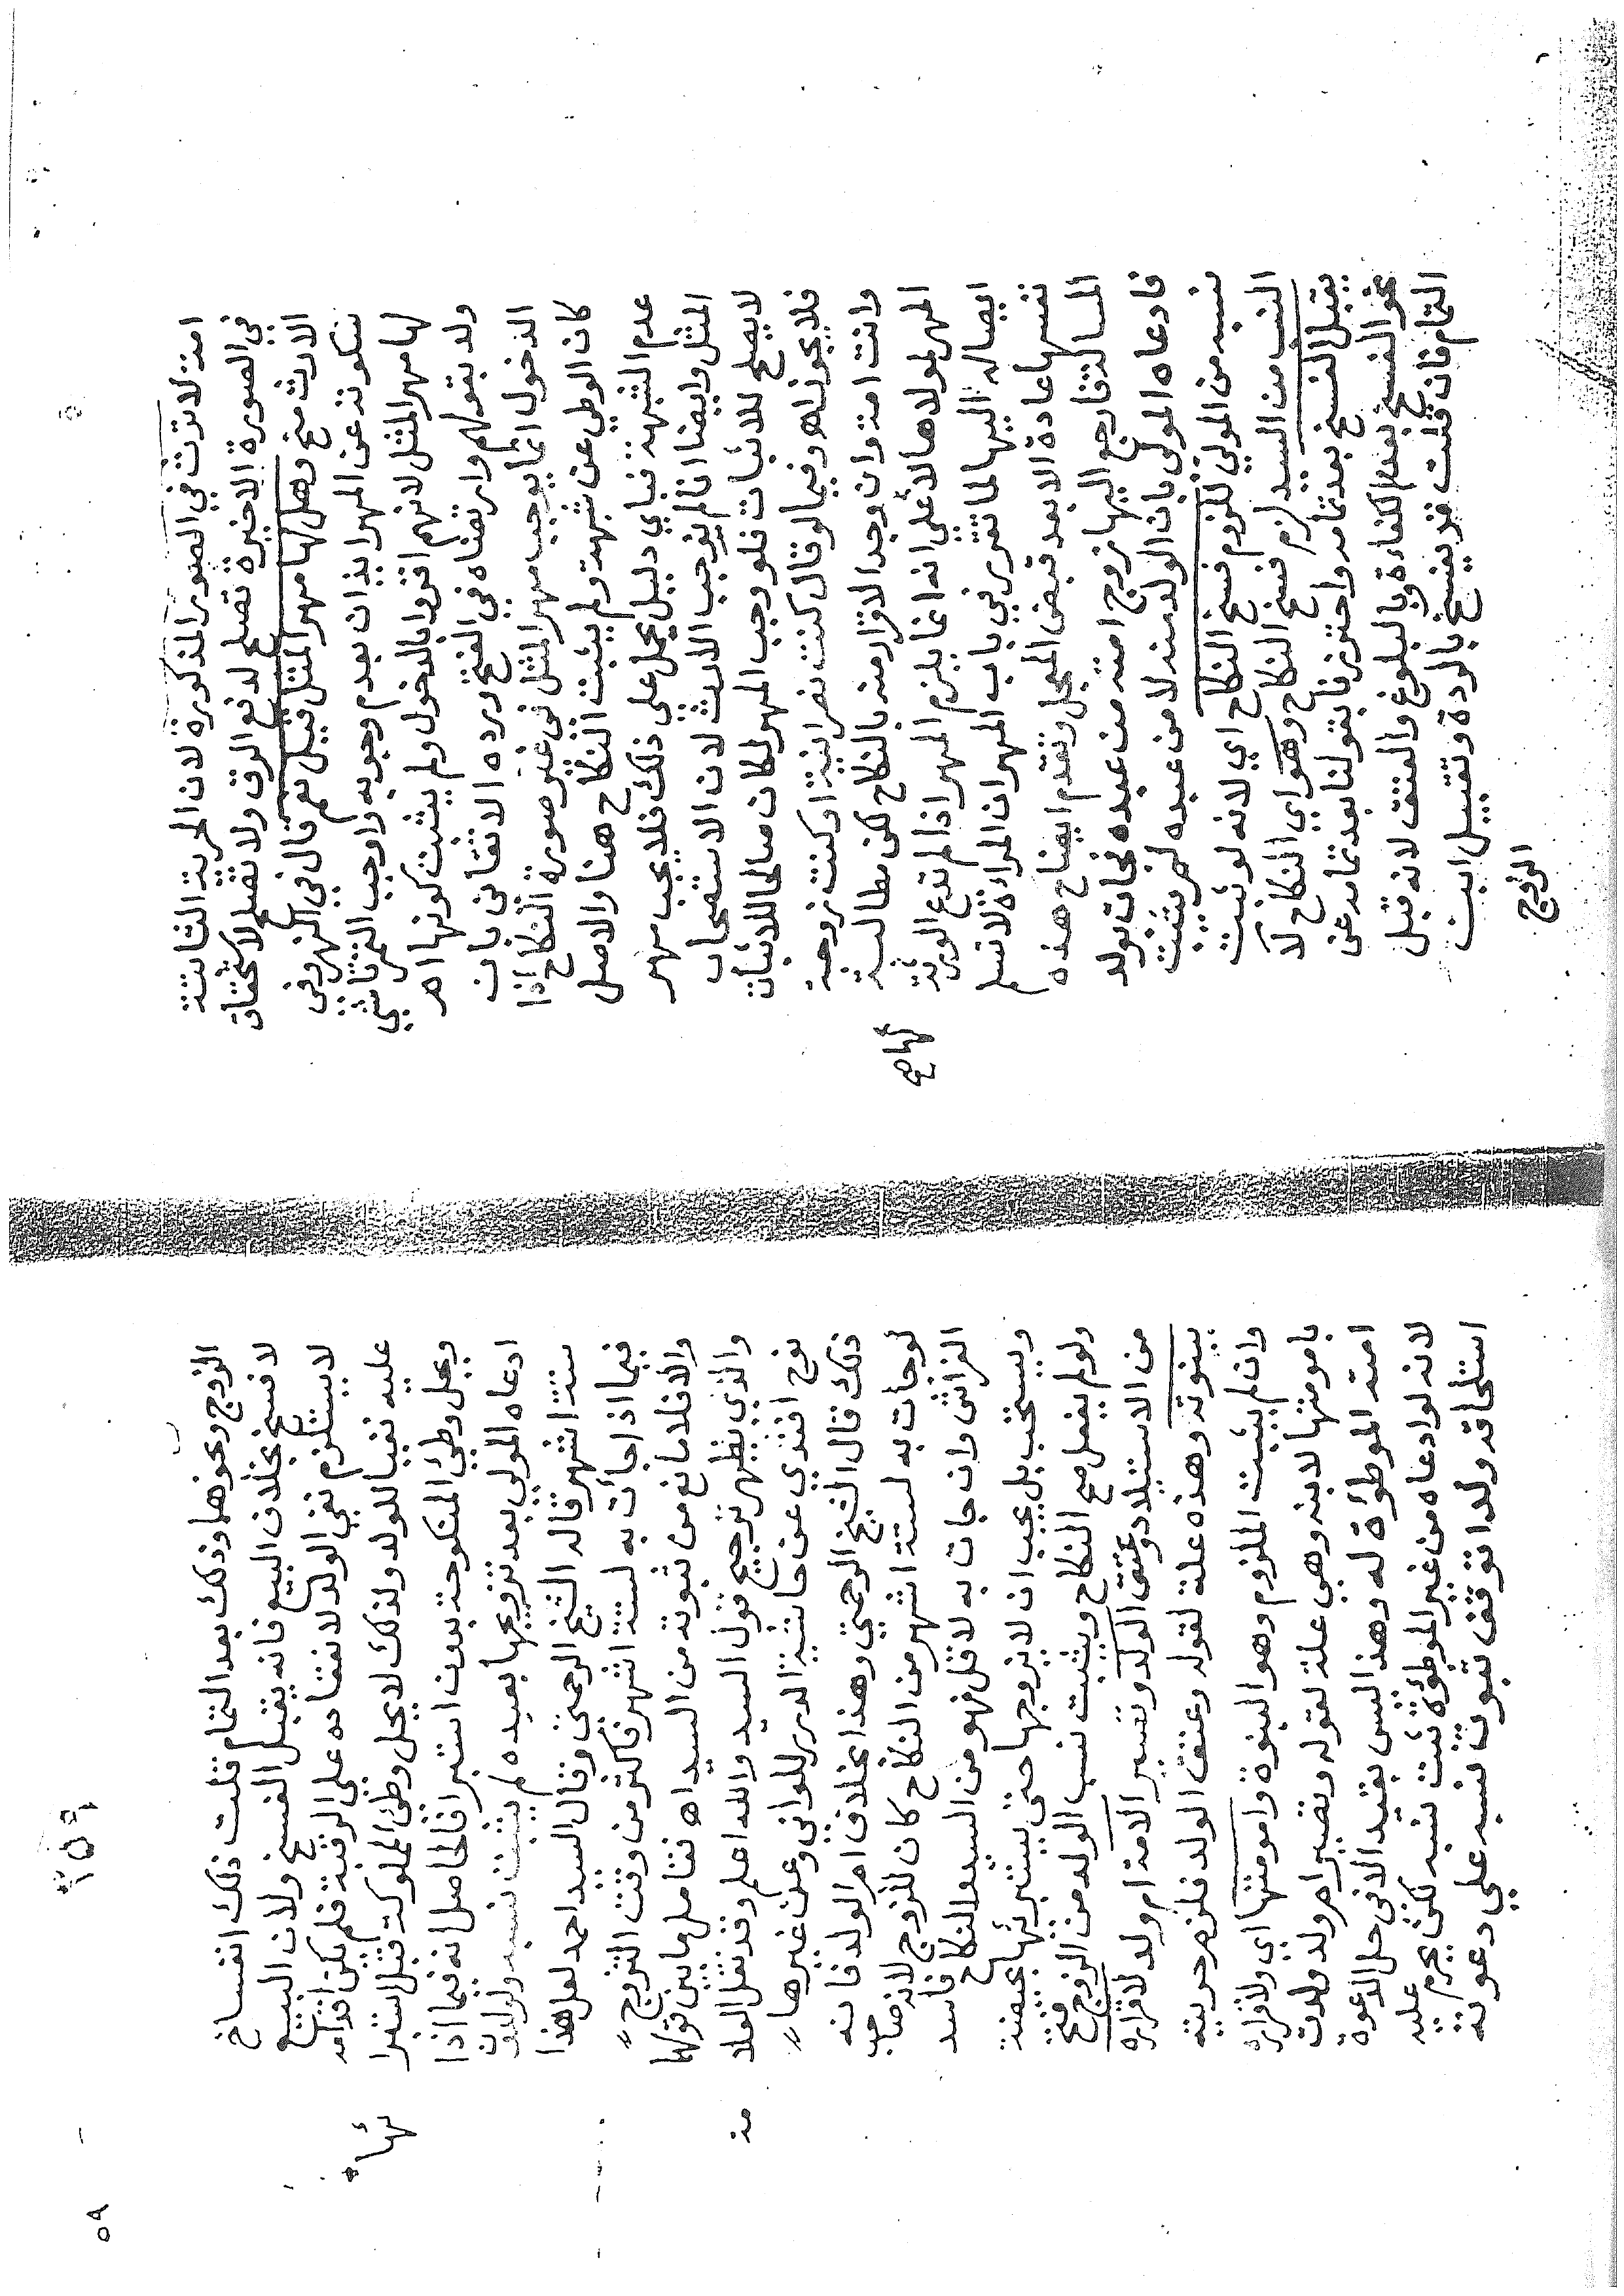 امته لا ترث في الصور المذكورة لان الحرية الثابتة
في الصورة الاخيرة تصلح لدفع الرق ولا تصلح لاستحقاق
الارث منح وهل لها مهر المثل قيل نعم قال في النهر وفي
سكوته عن المهر ايذان بعدم وجوبه واوجب التمرتاشي
لها مهر المثل لانهم اقروا بالدخول ولم يثبت كونها ام
ولد بقولهم وارتضاه في الفتح ورده الاتقاني بان
الدخول انما يوجب مهر المثل في غير صورة النكاح اذا
كان الوطي عن شبهة ولم يثبت النكاح هنا والاصل
عدم الشبهة فباي دليل يحمل على ذلك فلا يجب مهر
المثل وايضا انما لم نوجب الارث لان الاستصحاب
لا يصلح للاثبات فلو وجب المهر لكان صالحا للاثبات
فلا يجوز اهـ وفيما لو قال كنت نصرانية او كنت زوجة
وانت امته وان وجد الاقرار منه بالنكاح لكن مطالبة
المهر لمولاها لا على انه انما يلزم المهر اذا لم تدع الورثة
لها صح
ايصاله اليها لما تقرر في باب المهر ان المراة لا تسلم
نفسها عادة الا بعد قبض المعجل وتقدم ايضاح هذه
المسالة فارجع اليها زوج امته من عبده فجات بولد
فادعاه المولى بان الولد منه لا من عبده لم يثبت
نسبه من المولى للزوم فسخ النكاح اي لانه لو ثبت
النسب من السيد لزم فسخ النكاح وهو اي النكاح لا
يقبل الفسخ بعد تمامه واحترزنا بقولنا بعد تمامه عن
نحو الفسخ بعدم الكفاءة وبالبلوغ والعتق لانه قبل
التمام فان قلت قد يفسخ بالردة وتقبيل ابن
الزوج
٢٥٩
الزوج ونحوهما وذلك بعد التمام قلت ذلك انفساخ
لا فسخ بخلاف البيع فانه يقبل الفسخ ولان البيع
لا يستلزم نفي الولد لانعقاده على الرقبة فلم يكن اقدامه
عليه نفيا للولد ولذلك لا يحل وطئ المملوكة قبل استبرا
ئها
ويحل وطئ المنكوحة بدون استبرا فالحاصل انه فيما اذا
ادعاه المولى بعد تزويجها بعبده لم يثبت نسبه ولو لدون
ستة اشهر قاله الشيخ الرحمتي وقال السيد احمد لعل هذا
فيما اذا جأت به لستة اشهر فاكثر من وقت التزوج
والا فلا مانع من ثبوته من السيد اهـ فتامل ما بين قولهما
والذي يظهر ترجيح قول السيد والله اعلم وقد نقل العلا
مه
نوح افندي عن حاشية الدرر للواني وعن غيرها
ذلك قال الشيخ الرحمتي وهذا بخلاف ام الولد فانه
لو جات به لستة اشهر من النكاح كان للزوج لانه صاحب
الفراش وان جات به لاقل فهو من السيد والنكاح فاسد
ويستحب بل يجب ان لا يزوجها حتى يستبرئها بحيضة
ولو لم يفعل صح النكاح ويثبت نسب الولد من الزوج فتح
من الاستيلاد وعتق الولد وتصير الامة ام ولد لاقراره
ببنوته وهذه علة لقوله وعتق الولد فلزم حريته
وان لم يثبت الملزوم وهو البنوة وامومتها اي ولاقراره
بامومتها لابنه وهي علة لقوله وتصير ام ولد ولدت
امته الموطؤة له وهذا ليس بقيد الا في حل الدعوة
لانه لو ادعاه من غير الموطؤة ثبت نسبه لكن يحرم عليه
استلحاقه ولدا توقف ثبوت نسبه على دعوته
٥٩